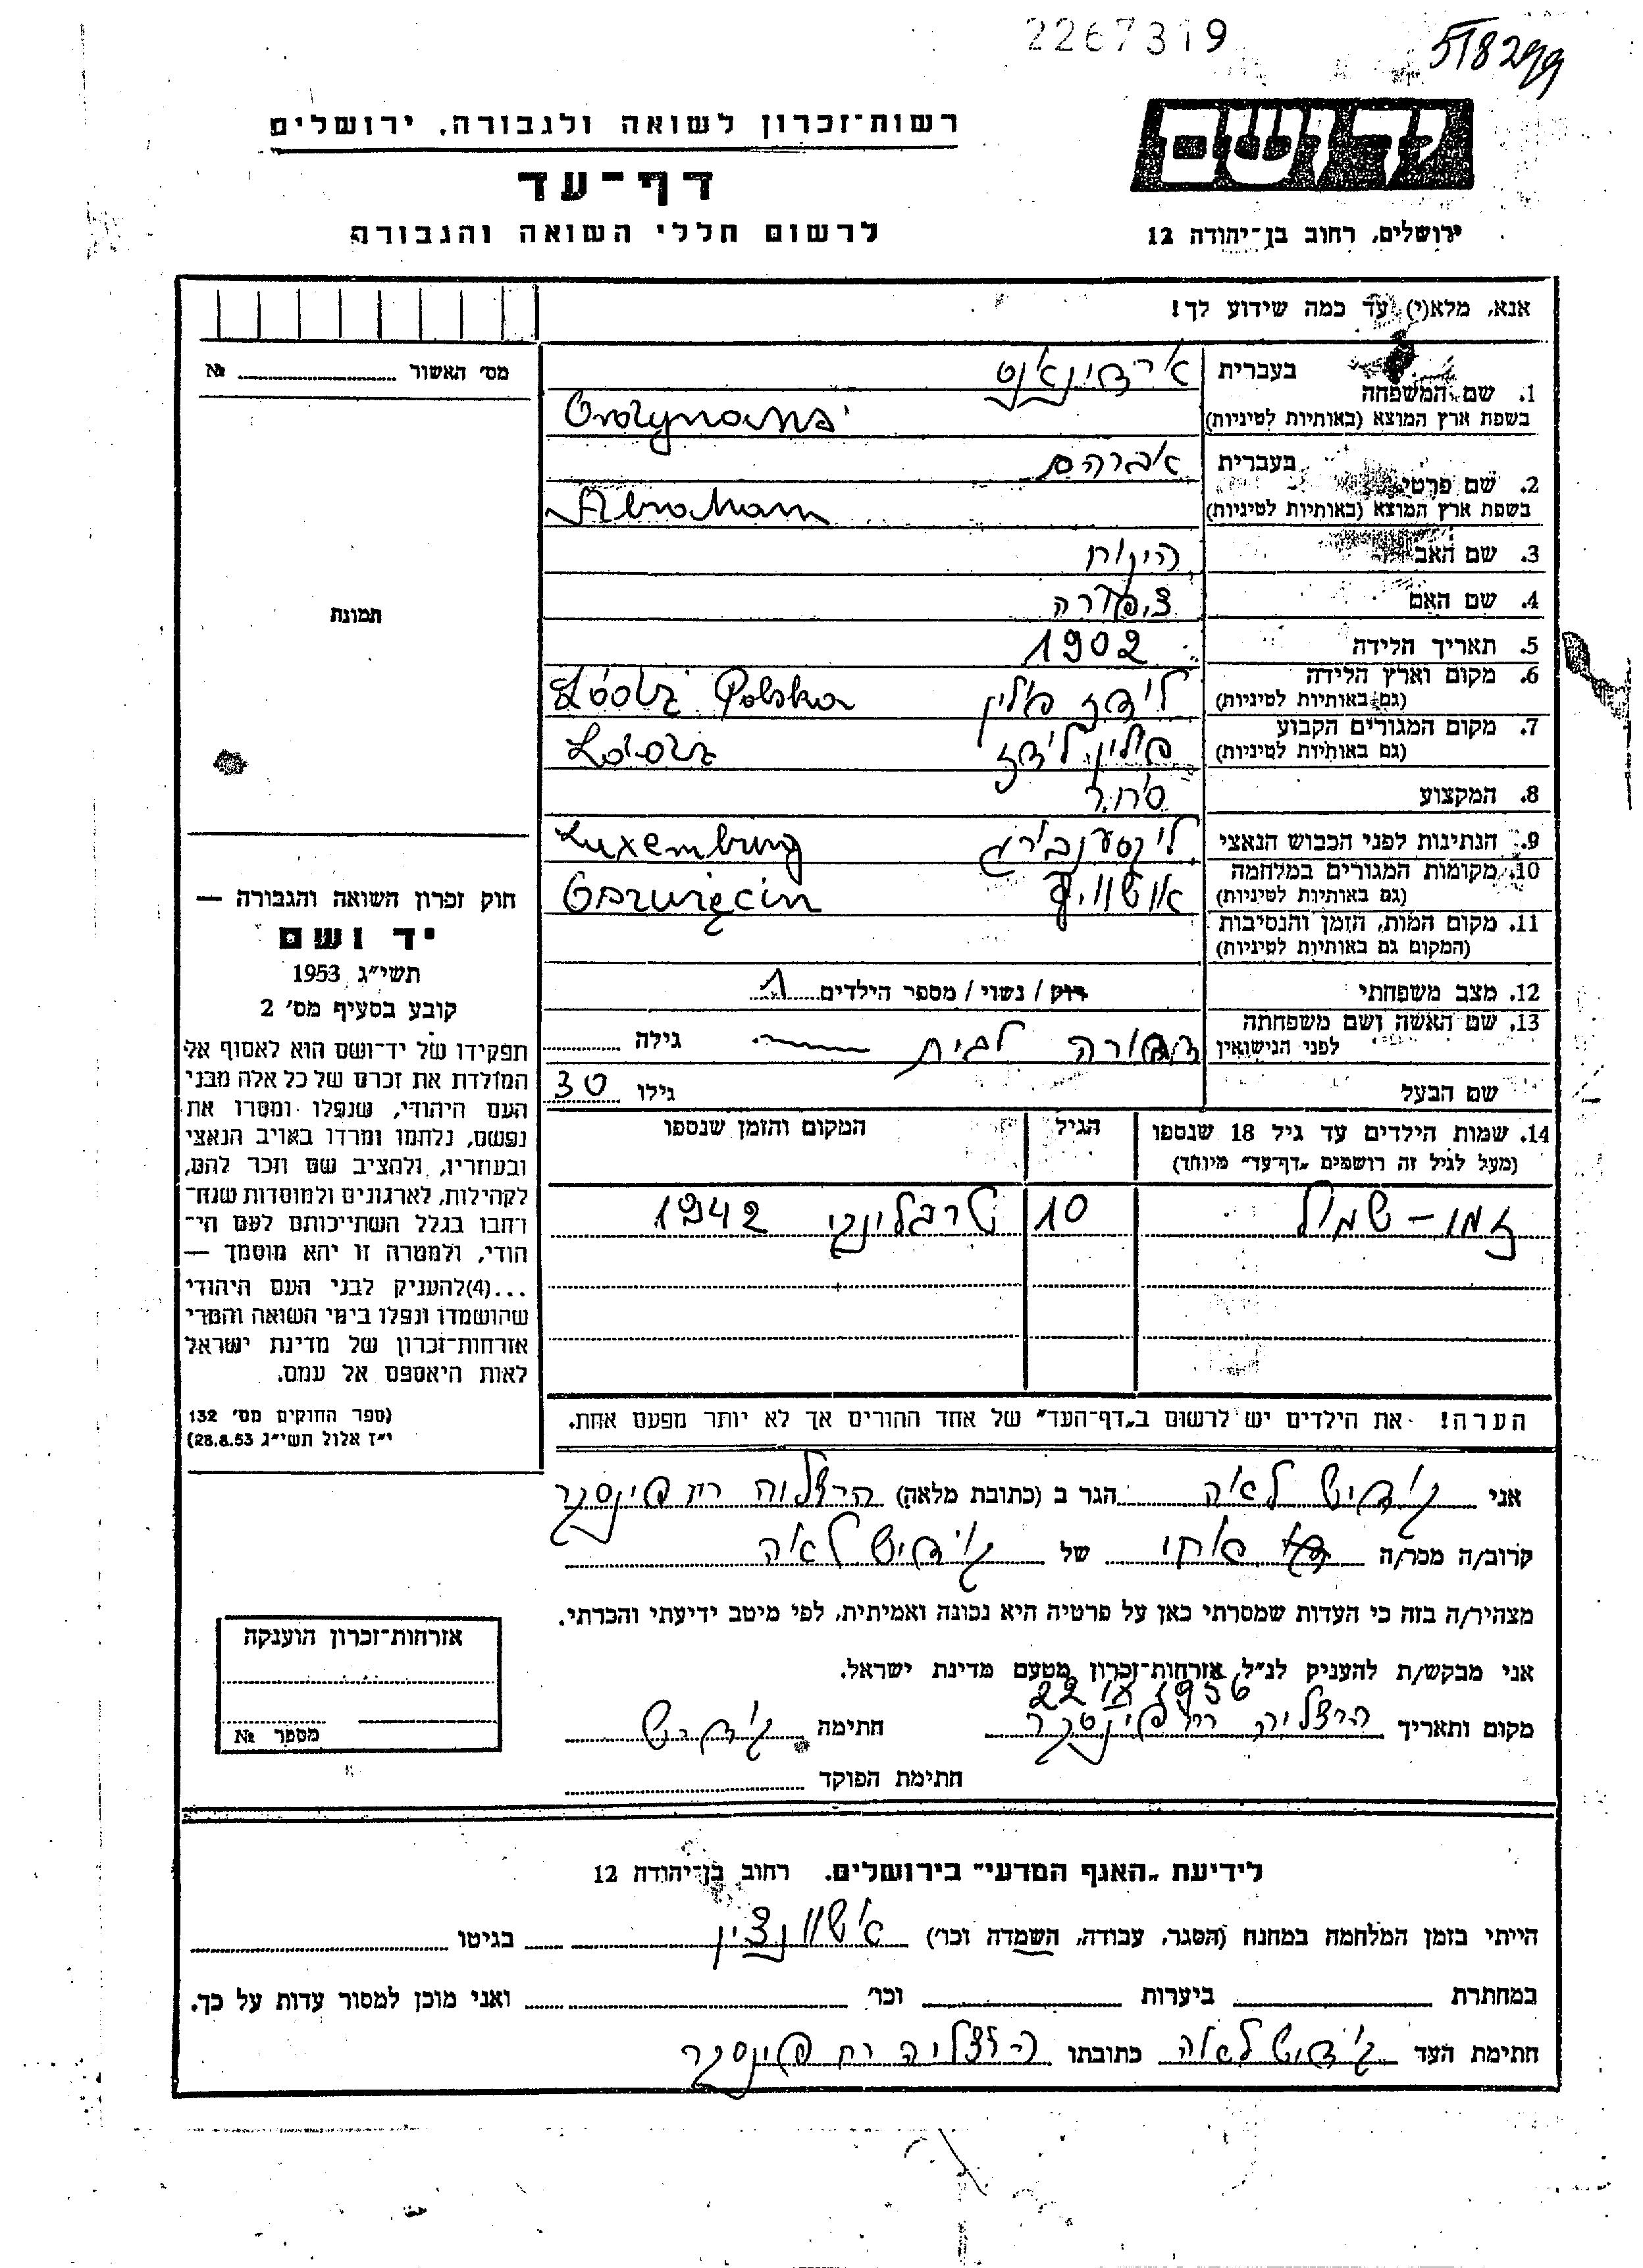 2267319
518299
יד ושם
ירושלים, רחוב בן־יהודה 12
רשות־זכרון לשואה ולגבורה, ירושלים
דף־עד
לרשום חללי השואה והגבורה
אנא, מלא(י) עד כמה שידוע לך!
מס׳ האשור № 
1. שם המשפחה
בעברית
בשפת ארץ המוצא (באותיות לטיניות)
2. שם פרטי
בעברית אברהם
בשפת ארץ המוצא (באותיות לטיניות) Abraham
3. שם האב
4. שם האם צפורה
5. תאריך הלידה 1902
6. מקום וארץ הלידה
(גם באותיות לטיניות) לודז פולין Łódź Polska
7. מקום המגורים הקבוע
(גם באותיות לטיניות) פולין לודז Łódź
8. המקצוע סוחר
9. הנתינות לפני הכבוש הנאצי Luxemburg
10. מקומות המגורים במלחמה
(גם באותיות לטיניות) Oszwięcin
11. מקום המות, הזמן והנסיבות
(המקום גם באותיות לטיניות)
12. מצב משפחתי רוק / נשוי / מספר הילדים 1
13. שם האשה ושם משפחתה
לפני הנישואין לבית גילה
שם הבעל גילו 30
14. שמות הילדים עד גיל 18 שנספו
(מעל לגיל זה רושמים „דף־עד״ מיוחד)
הגיל
המקום והזמן שנספו
10 טרבלינקי 1942
הערה! את הילדים יש לרשום ב„דף־העד״ של אחד ההורים אך לא יותר מפעם אחת.
תמונה
חוק זכרון השואה והגבורה —
יד ושם
תשי״ג 1953
קובע בסעיף מס׳ 2
תפקידו של יד־ושם הוא לאסוף אל
המולדת את זכרם של כל אלה מבני
העם היהודי, שנפלו ומסרו את
נפשם, נלחמו ומרדו באויב הנאצי
ובעוזריו, ולהציב שם וזכר להם,
לקהילות, לארגונים ולמוסדות שנח־
רחבו בגלל השתייכותם לעם הי־
הודי, ולמטרה זו יהא מוסמך —
...(4)להעניק לבני העם היהודי
שהושמדו ונפלו בימי השואה והמרי
אזרחות־זכרון של מדינת ישראל
לאות היאספם אל עמם.
(ספר החוקים מס׳ 132
י״ז אלול תשי״ג 28.8.53)
אני לאה הגר ב (כתובת מלאה) הרצליה רח פינסקר
קרוב/ה מכר/ה אחי של לאה
מצהיר/ה בזה כי העדות שמסרתי כאן על פרטיה היא נכונה ואמיתית, לפי מיטב ידיעתי והכרתי.
אני מבקש/ת להעניק לנ״ל אזרחות־זכרון מטעם מדינת ישראל.
מקום ותאריך הרצליה רח פינסקר 1956 חתימה
חתימת הפוקד
אזרחות־זכרון הוענקה
מספר №
לידיעת „האגף המדעי״ בירושלים. רחוב בן־יהודה 12
הייתי בזמן המלחמה במחנה (הסגר, עבודה, השמדה וכו׳) בגיטו
במחתרת ביערות וכו׳ ואני מוכן למסור עדות על כך.
חתימת העד לאה כתובתו הרצליה רח פינסקר